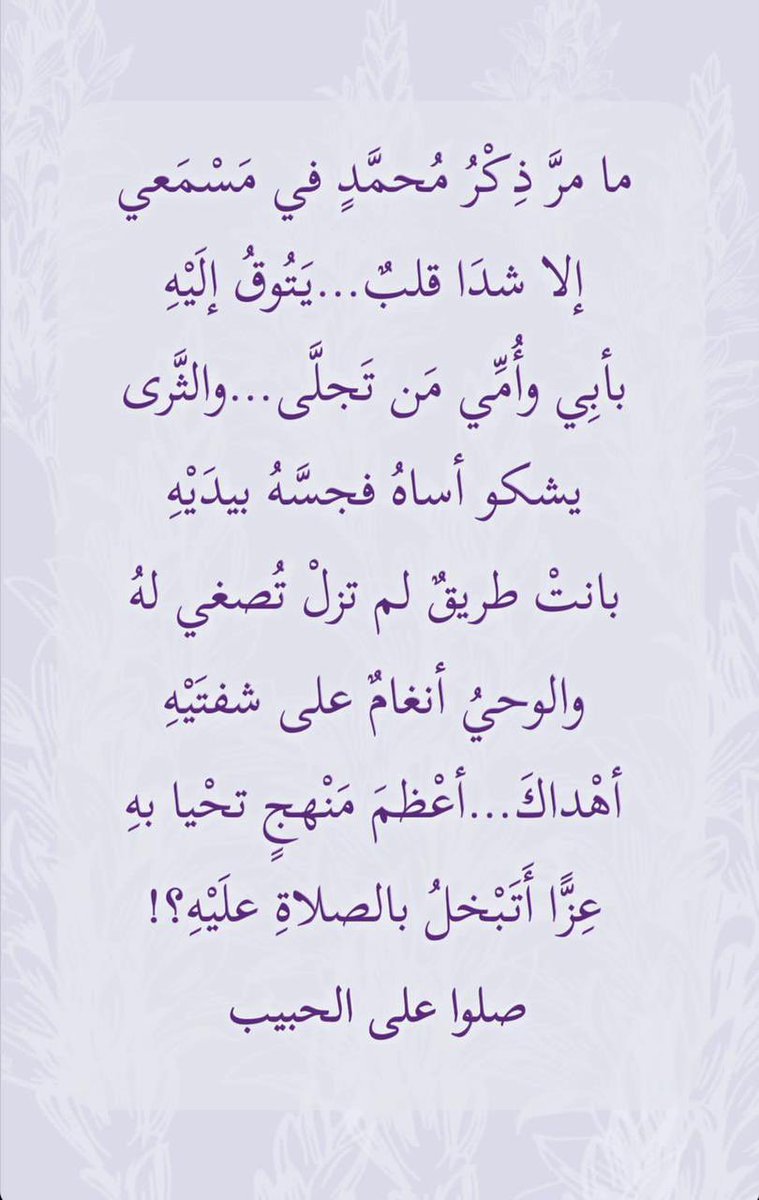 ما مرَّ ذِكْرُ مُحمَّدٍ في مَسْمَعي
إلا شدَا قلبٌ...يَتُوقُ إلَيْهِ
بأبِي وأُمِّي مَن تَجلَّى...والثَّرى
يشكو أساهُ فجسَّهُ بيدَيْهِ
بانتْ طريقٌ لم تزلْ تُصغي لهُ
والوحيُ أنغامٌ على شفتَيْهِ
أهْداكَ...أعْظمَ مَنْهجٍ تحْيا بهِ
عِزًّا أَتَبْخلُ بالصلاةِ علَيْهِ؟!
صلوا على الحبيب